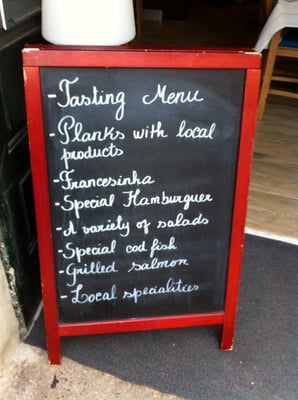 -Tasting Menu
-Planks with local
products
-Francesinha
-Special Hamburguer
-A variety of salads
-Special cod fish
-Grilled salmon
-Local specialities